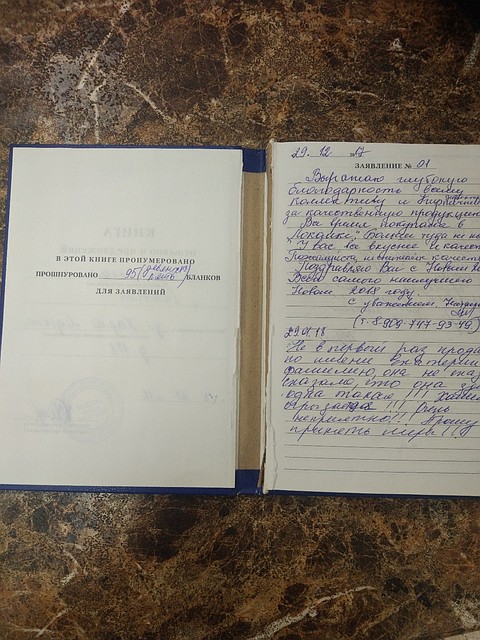 В ЭТОЙ КНИГЕ ПРОНУМЕРОВАНО
ПРОШНУРОВАНО 95 (девяносто пять) БЛАНКОВ
ДЛЯ ЗАЯВЛЕНИЙ
29. 12 17
ЗАЯВЛЕНИЕ № 01
Выражаю глубокую
благодарность всему
коллективу и
за качественную продукцию
Вы лучше покупание в
"Локалке" Больше пока не
У вас все вкуснее и качест
Пожалуйста,
Поздравляю Вас с Новым
Всего самого наилучшего
Новом 2018 году
с уважением,
(т. 8-909-747-93-49)
29.01.18
Не в первый раз прода
по имени Екатерин
фамилию, она не
сказала, что она
одна такая!!!
!!! Очень
неприятно!! Прошу
принять меры!!!